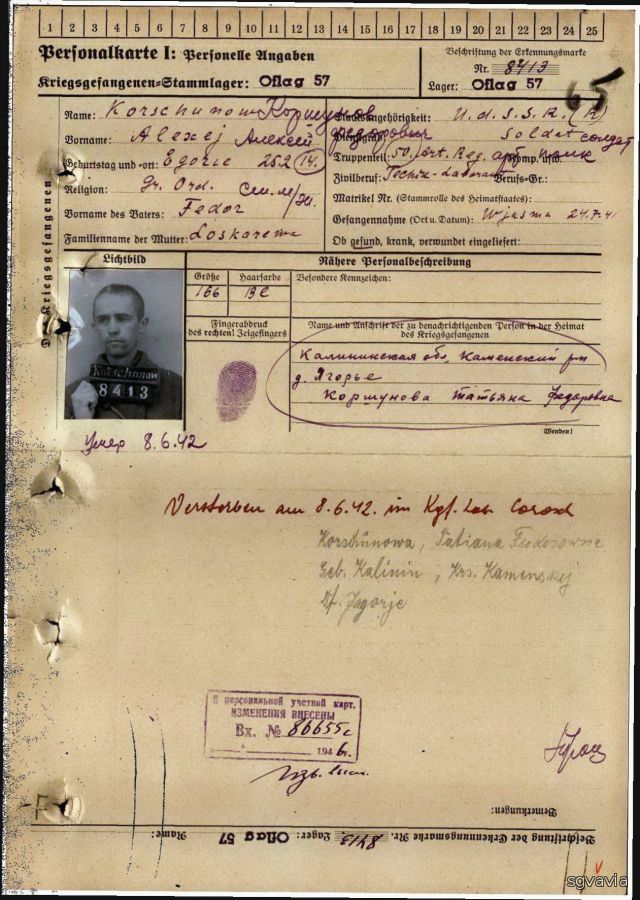 1 2 3 4 5 6 7 8 9 10 11 12 13 14 15 16 17 18 19 20 21 22 23 24 25
Personalkarte I: Personelle Angaben
Kriegsgefangenen-Stammlager: Oflag 57
Beschriftung der Erkennungsmarke
Nr. 8413
Lager: Oflag 57
65
Des Kriegsgefangenen
Name: Korschunow Коршунов
Vorname: Alexej Алексей Федорович
Geburtstag und -ort: Egorie 25 2 14.
Religion: gr. Ord.
Vorname des Vaters: Fedor
Familienname der Mutter: Loskarewa
Staatsangehörigkeit: U.d.S.S.R. (R)
Dienstgrad: Soldat солдат
Truppenteil: 50. Art. Reg. арт. полк Komp. usw.
Zivilberuf: Techn.-Laborant Berufs-Gr.:
Matrikel Nr. (Stammrolle des Heimatstaates):
Gefangennahme (Ort u. Datum): Wjasma 24.7.41
Ob gesund, krank, verwundet eingeliefert:
Lichtbild
Nähere Personalbeschreibung
Größe Haarfarbe
166 Bl
Besondere Kennzeichen:
Fingerabdruck
des rechten! Zeigefingers
Name und Anschrift der zu benachrichtigenden Person in der Heimat
des Kriegsgefangenen
Калининская обл. Каменский р-н
д. Ягорье
Коршунова Татьяна Федоровна
Wenden!
Korschunow
8413
Умер 8.6.42
Verstorben am 8.6.42. im Kgf.
Korschunowa, Tatiana Feodorowne
Geb. Kalinin, Krs. Kamenskej
Df. Jagorje
В персональной учетной карт.
ИЗМЕНЕНИЯ ВНЕСЕНЫ
Вх. № 86655с
194 6 г.
Bemerkungen:
Beschriftung der Erkennungsmarke Nr. 8413 Lager: Oflag 57 Name:
sgvavia